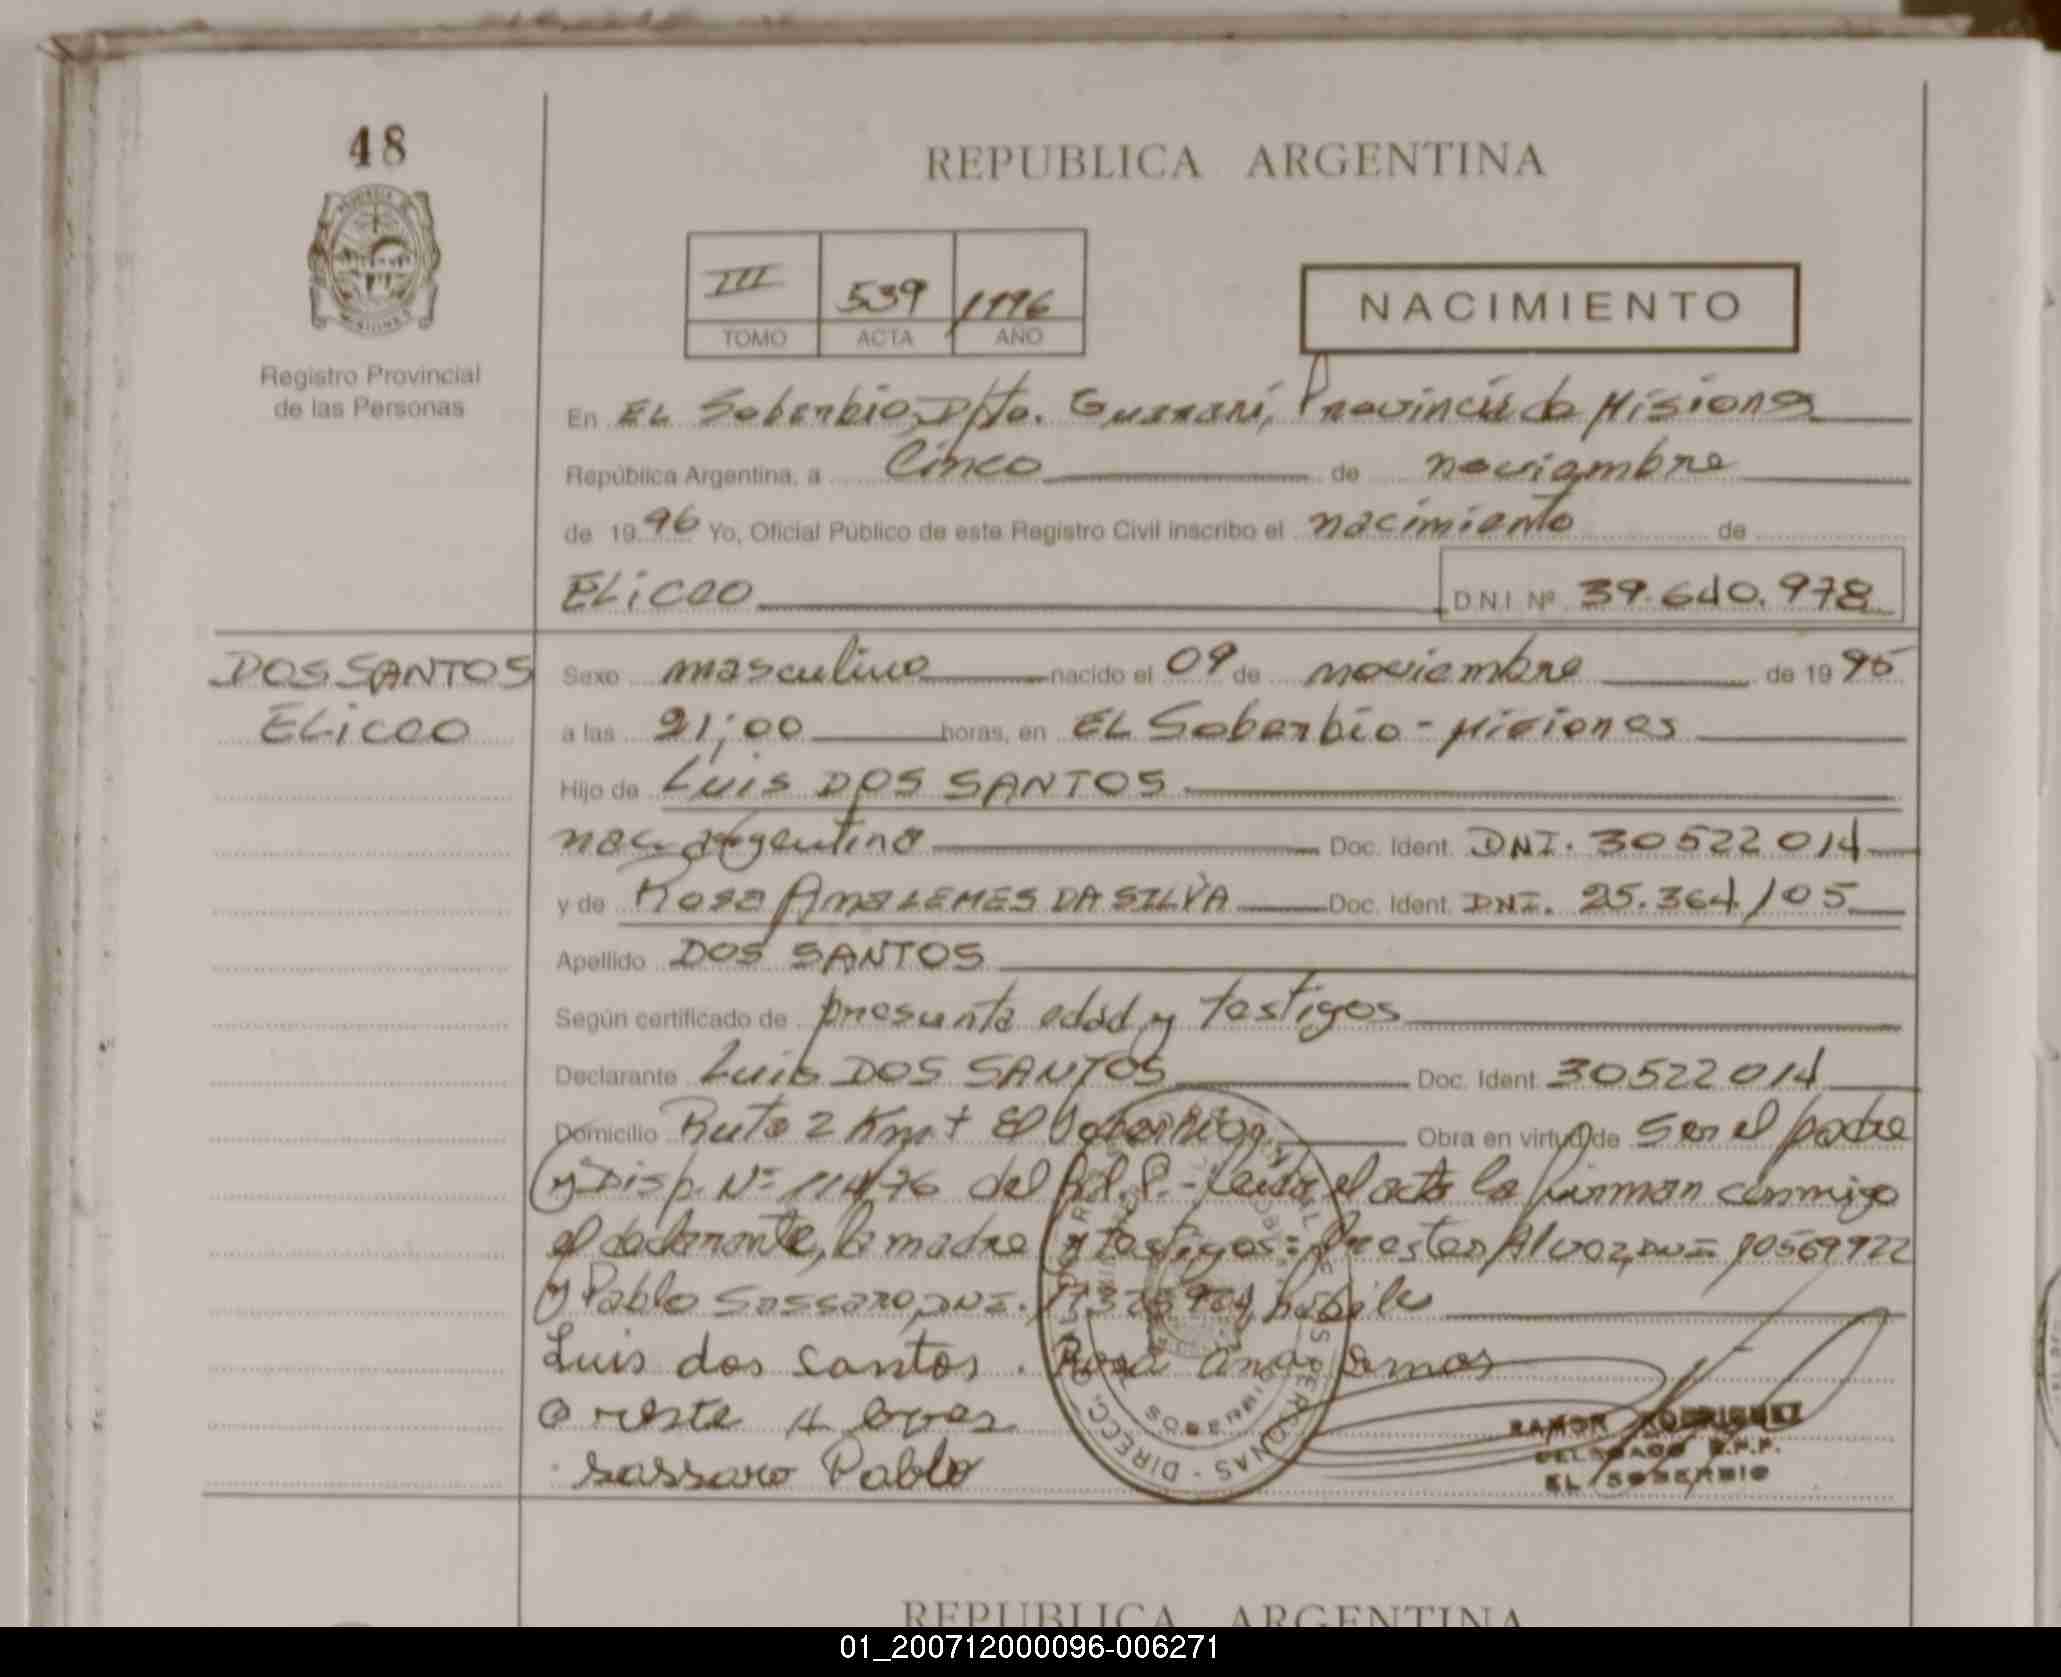 48
REPUBLICA ARGENTINA
III 539 1996
TOMO ACTA AÑO
NACIMIENTO
Registro Provincial
de las Personas
En EL Soberbio, Dpto. Guaraní, Provincia de Misiones
República Argentina, a Cinco de noviembre
de 1996 Yo, Oficial Público de este Registro Civil inscribo el nacimiento de
ELiceo D.N.I. Nº 39.640.978
DOS SANTOS
ELiceo
Sexo masculino nacido el 09 de noviembre de 1995
a las 21;00 horas, en EL Soberbio - Misiones
Hijo de Luis DOS SANTOS
nac. argentina Doc. Ident. DNI. 30522014
y de Rosa Ana LEMES DA SILVA Doc. Ident. DNI. 25.364.105
Apellido DOS SANTOS
Según certificado de presunta edad y testigos
Declarante Luis DOS SANTOS Doc. Ident. 30522014
Domicilio Ruta 2 Km + El Soberbio Obra en virtud de ser el padre
y Disp. Nº 114/76 del R.P.- Leída el acta la firman conmigo
el declarante, la madre y testigos: Alvez, DNI 10569922
y Pablo Sassaro, DNI. habile
Luis dos santos . Rosa ana Lemos
A
sassaro Pablo
RAMON RODRIGUEZ
DELEGADO R.P.P.
EL SOBERBIO
REPUBLICA ARGENTINA
01_200712000096-006271